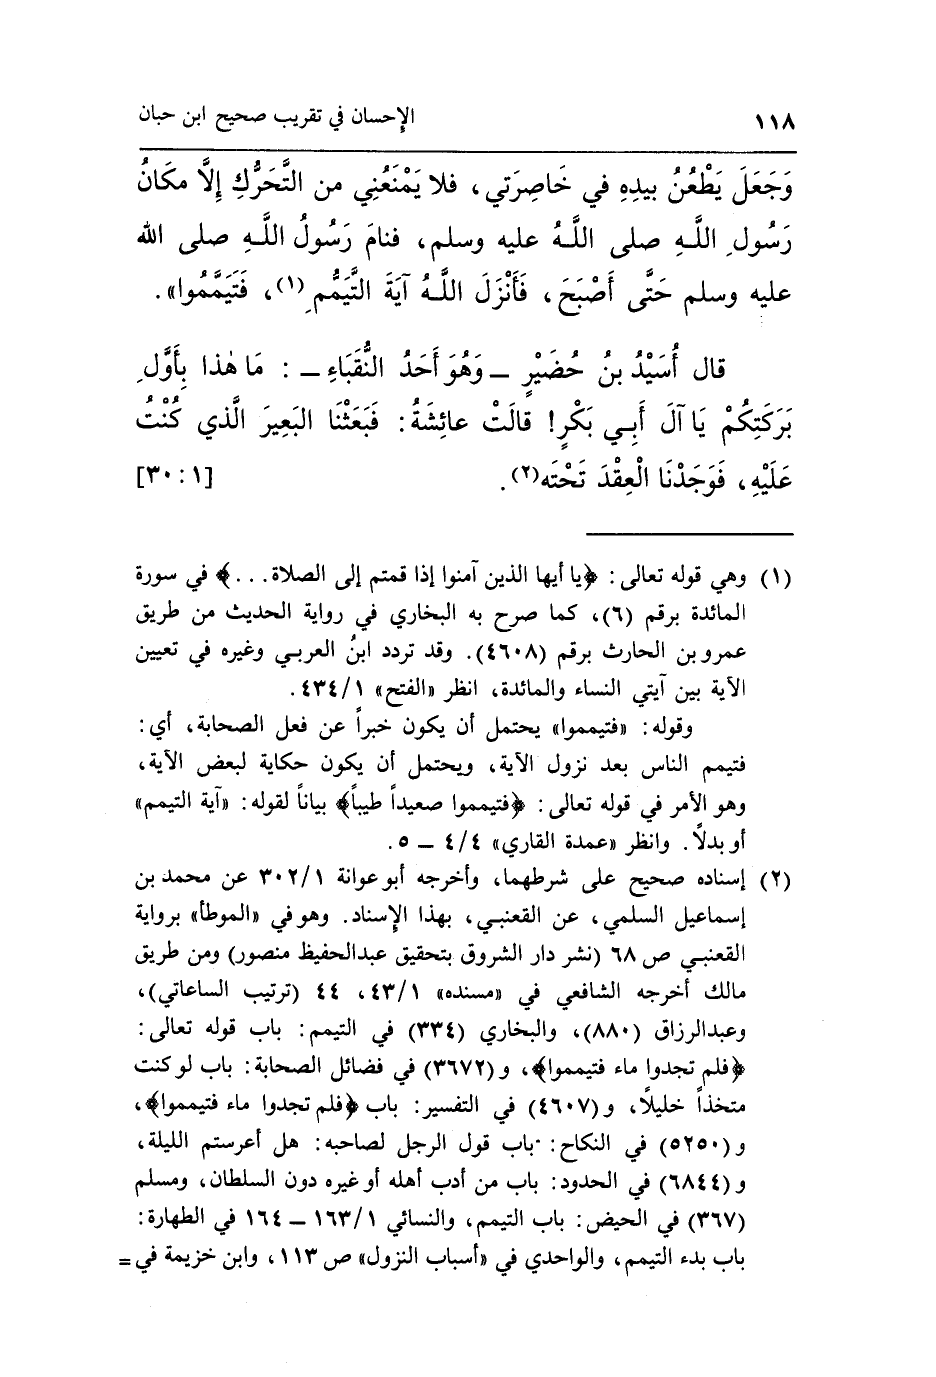 ١١٨ الإحسان في تقريب صحيح ابن حبان
وَجَعَلَ يَطْعُنُ بيدِهِ في خَاصِرَتي، فلا يَمْنَعُنِي من التَّحَرُّكِ إلَّا مكَانُ
رَسُولِ اللَّهِ صلى اللَّهُ عليه وسلم، فنامَ رَسُولُ اللَّهِ صلى الله
عليه وسلم حَتَّى أَصْبَحَ، فَأَنْزَلَ اللَّهُ آيَةَ التَّيَمُّمِ(١)، فَتَيَمَّمُوا».
قال أُسَيْدُ بنُ حُضَيْرٍ ــ وَهُوَ أَحَدُ النُّقَبَاءِ ــ : مَا هٰذا بِأَوَّلِ
بَرَكَتِكُمْ يَا آلَ أَبِي بَكْرٍ! قالَتْ عائِشَةُ: فَبَعَثْنَا البَعِيرَ الَّذي كُنْتُ
عَلَيْهِ، فَوَجَدْنَا الْعِقْدَ تَحْتَه(٢). [١ : ٣٠]
(١) وهي قوله تعالى: ﴿يا أيها الذين آمنوا إذا قمتم إلى الصلاة...﴾ في سورة
المائدة برقم (٦)، كما صرح به البخاري في رواية الحديث من طريق
عمرو بن الحارث برقم (٤٦٠٨). وقد تردد ابنُ العربي وغيره في تعيين
الآية بين آيتي النساء والمائدة، انظر «الفتح» ٤٣٤/١.
وقوله: «فتيمموا» يحتمل أن يكون خبراً عن فعل الصحابة، أي:
فتيمم الناس بعد نزول الآية، ويحتمل أن يكون حكاية لبعض الآية،
وهو الأمر في قوله تعالى: ﴿فتيمموا صعيداً طيباً﴾ بياناً لقوله: «آية التيمم»
أو بدلاً. وانظر «عمدة القاري» ٤/٤ ــ ٥.
(٢) إسناده صحيح على شرطهما، وأخرجه أبو عوانة ٣٠٢/١ عن محمد بن
إسماعيل السلمي، عن القعنبي، بهذا الإسناد. وهو في «الموطأ» برواية
القعنبي ص ٦٨ (نشر دار الشروق بتحقيق عبدالحفيظ منصور) ومن طريق
مالك أخرجه الشافعي في «مسنده» ٤٣/١، ٤٤ (ترتيب الساعاتي)،
وعبدالرزاق (٨٨٠)، والبخاري (٣٣٤) في التيمم: باب قوله تعالى:
﴿فلم تجدوا ماء فتيمموا﴾، و (٣٦٧٢) في فضائل الصحابة: باب لو كنت
متخذاً خليلاً، و (٤٦٠٧) في التفسير: باب ﴿فلم تجدوا ماء فتيمموا﴾،
و (٥٢٥٠) في النكاح: باب قول الرجل لصاحبه: هل أعرستم الليلة،
و (٦٨٤٤) في الحدود: باب من أدب أهله أو غيره دون السلطان، ومسلم
(٣٦٧) في الحيض: باب التيمم، والنسائي ١٦٣/١ ــ ١٦٤ في الطهارة:
باب بدء التيمم، والواحدي في «أسباب النزول» ص ١١٣، وابن خزيمة في =